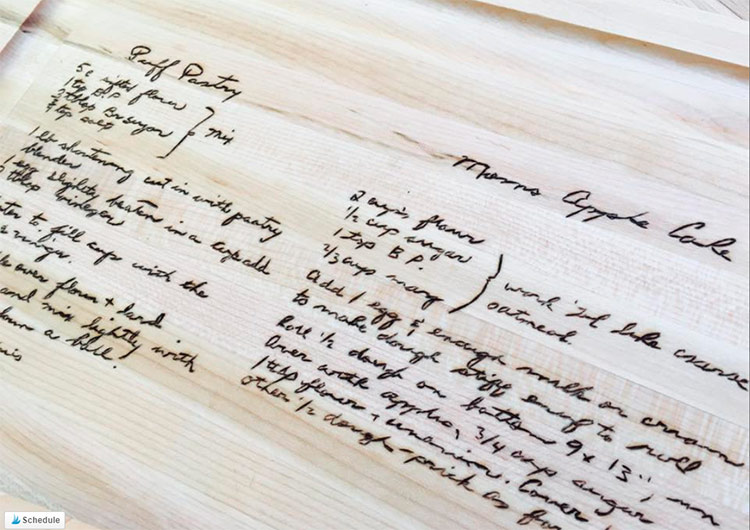 Puff Pastry
5 c sifted flour
1 tsp B.P.
2 tbsp Br sugar
tsp salt
} mix
1 lb shortening cut in with pastry
blender
1 egg slightly beaten in a cup add
tbsp vinegar
to fill cup with the
over flour + lard
and mix lightly with
a ball.
Moms Apple Cake
2 cups flour
1/2 cup sugar
1 tsp B.P.
2/3 cups marg
} work 'til like coarse
oatmeal
Add 1 egg & enough milk or cream
to make dough stiff enuf to roll
Roll 1/2 dough on bottom 9 x 13"
Cover with apples, 3/4 cup sugar
1 tsp flour, cinnamon. Cover
other 1/2 dough - prick as
Schedule